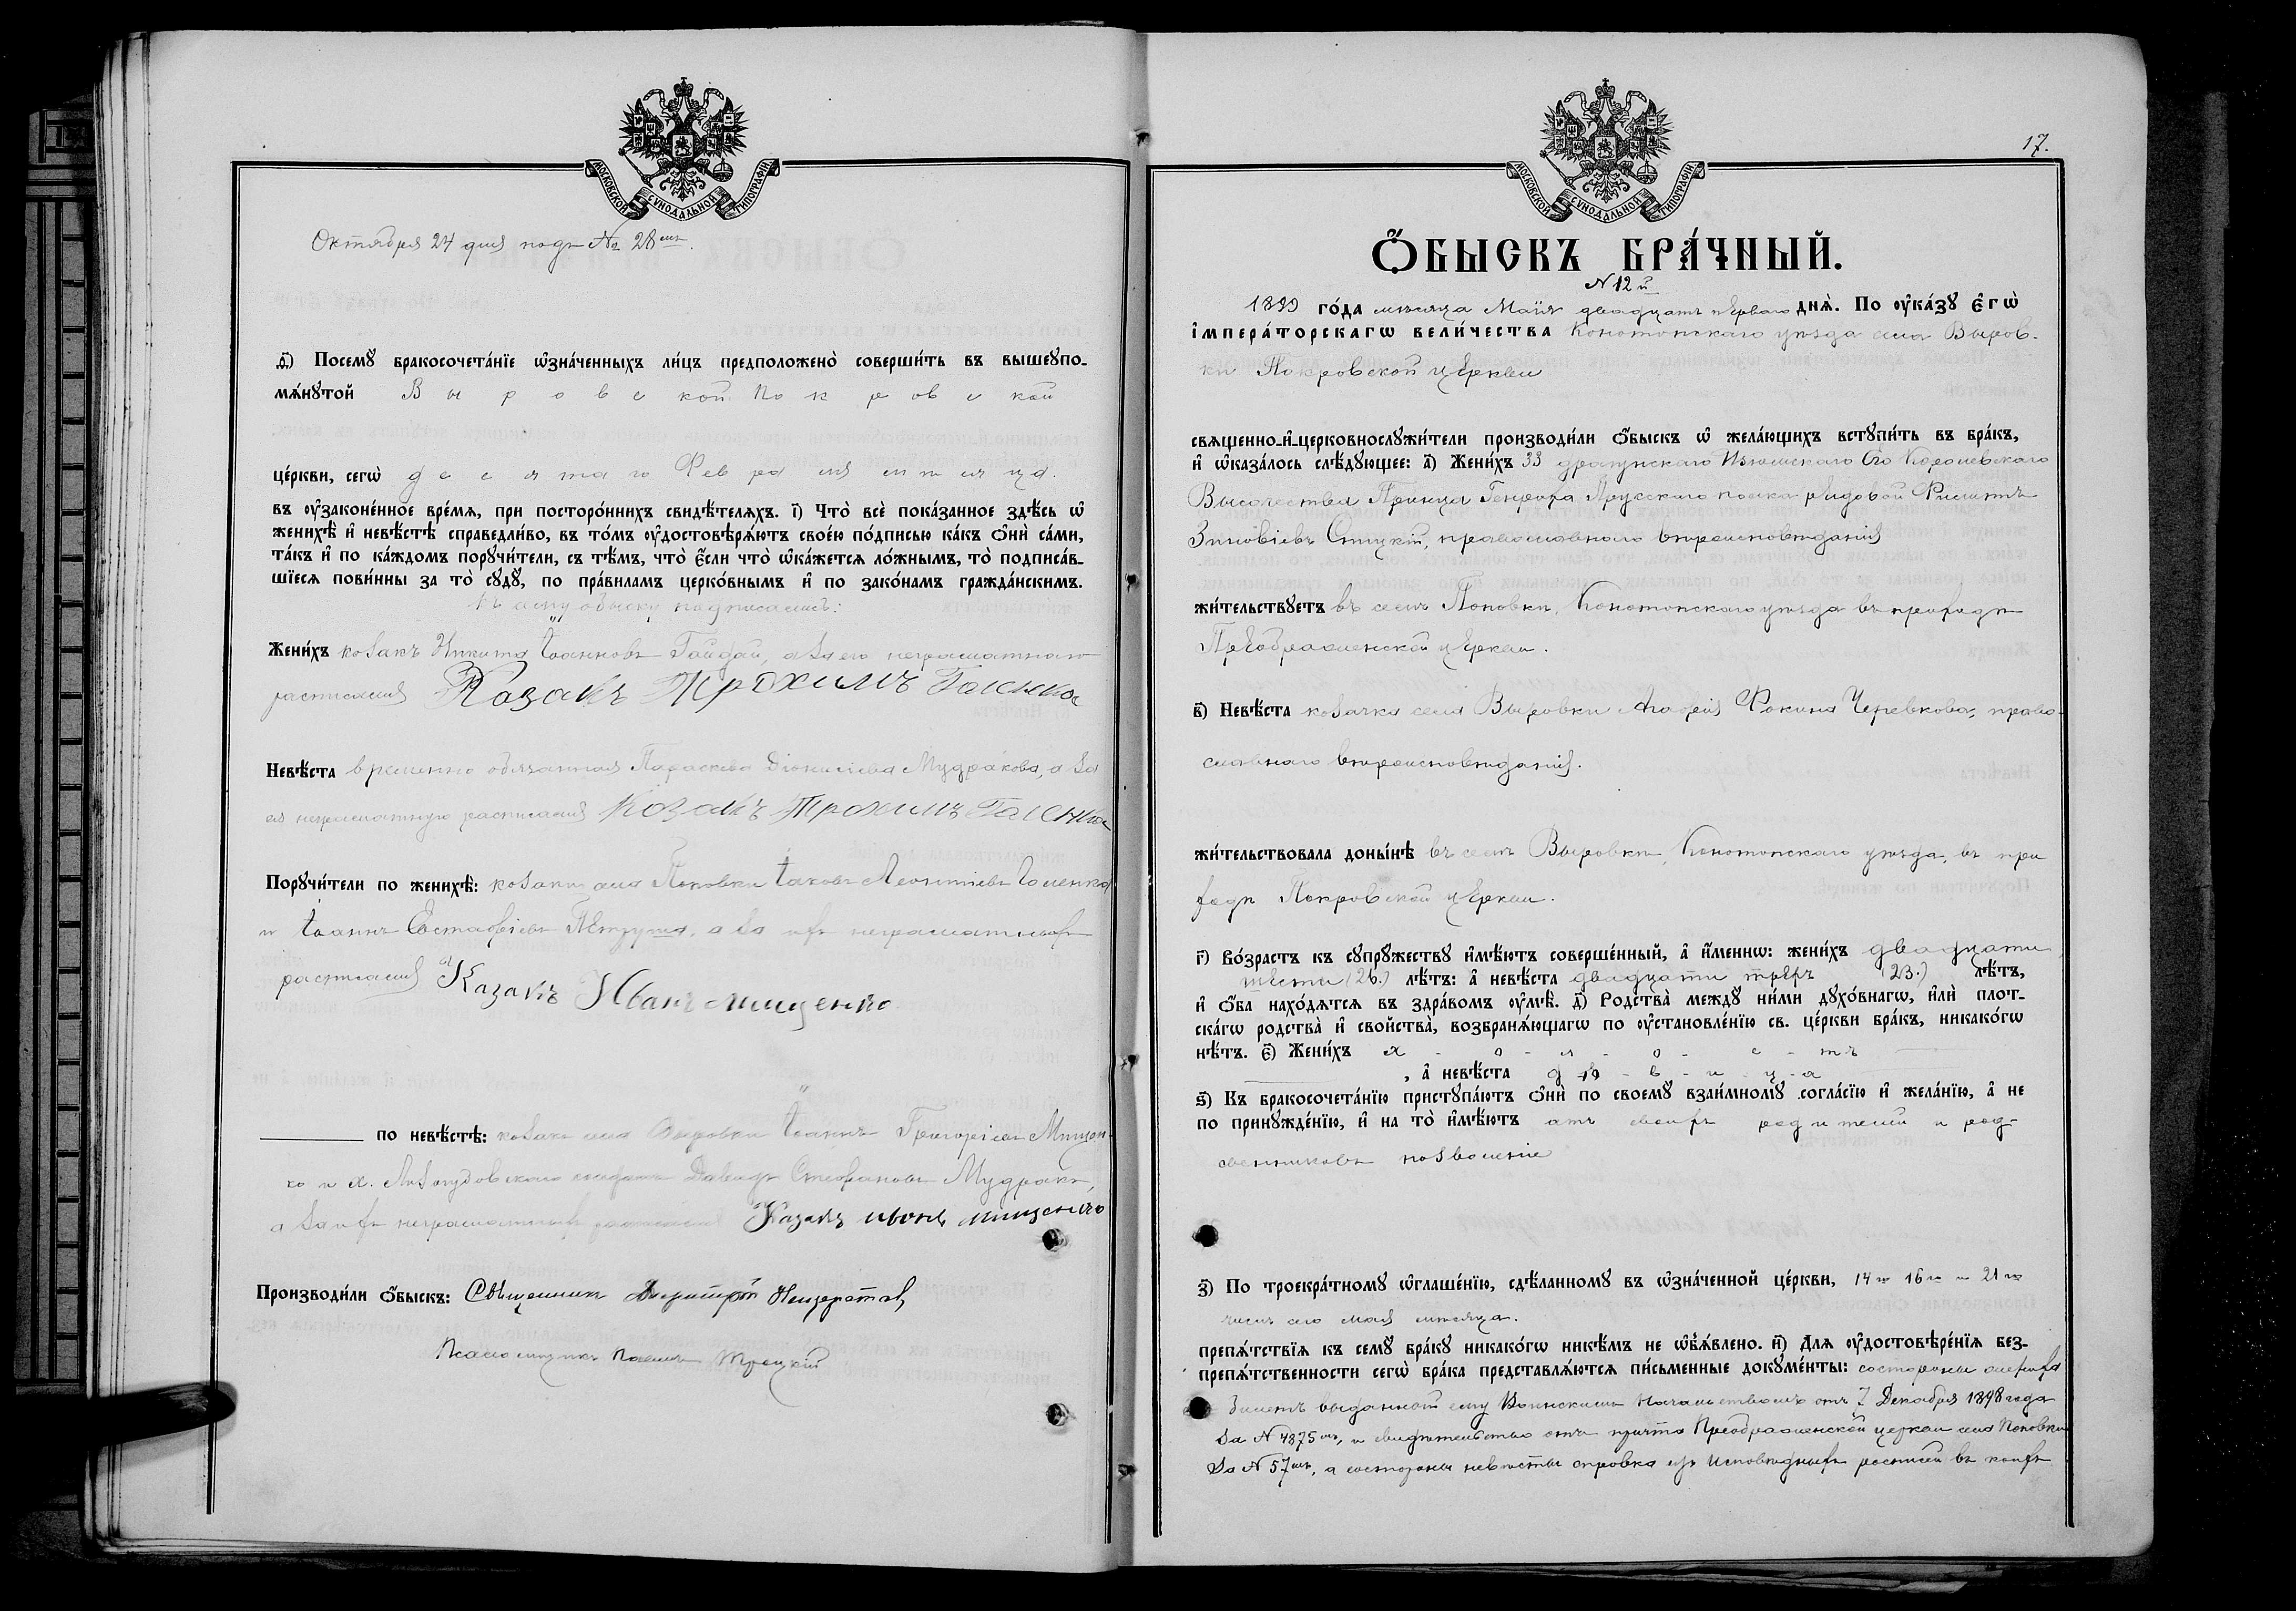 МОСКОВСКОЙ СѴНОДАЛЬНОЙ ТИПОГРАФІИ
Октября 24 дня подъ № 28мъ.
д҃) Посемꙋ бракосочета́нїе ѡ҆зна́ченныхъ ли́цъ предположено̀ соверши́ть въ вышеꙋпо-
мѧ́нꙋтой Выровской Покровской
це́ркви, сегѡ̀ десятаго Февраля мѣсяца.
въ оу҆законе́нное вре́мѧ, при посторо́ннихъ свидѣ́телѧхъ. і҃) Что̀ всѐ пока́занное здѣ́сь ѡ҆
женихѣ̀ и҆ невѣ́стѣ справедли́во, въ то́мъ оу҆достовѣрѧ́ютъ свое́ю по́дписью ка́къ ѻ҆нѝ са́ми,
та́къ и҆ по ка́ждомъ порꙋчи́тели, съ тѣ́мъ, что̀ є҆́сли что̀ ѡ҆ка́жетсѧ ло́жнымъ, то̀ подписа́в-
шїесѧ пови́нны за то̀ сꙋдꙋ̀, по пра́виламъ церко́внымъ и҆ по зако́намъ гражда́нскимъ.
Къ сему обыску подписались:
Жени́хъ козакъ Никита Іоанновъ Гайдай, а за его неграмотнаго
расписался Козакъ Трохимъ Галенко
Невѣ́ста временно обязанная Параскева Діонисіева Мудракова, а за
ея неграмотную расписался Козакъ Трохимъ Галенко
Порꙋчи́тели по женихѣ̀: козаки села Поповки Іаковъ Леонтіевъ Галенко
и Іоаннъ Евстафіевъ Петруша, а за ихъ неграмотныхъ
расписался Казакъ Иванъ Мищенко
по невѣ́стѣ: козакъ села Выровки Іоаннъ Григоріевъ Мищен-
ко и х. Лизогубовскаго Давидъ Стефановъ Мудракъ,
а за ихъ неграмотныхъ расписался Казакъ Иванъ Мищенко
Производи́ли ѻ҆́быскъ: Священникъ Димитрій
Псаломщикъ Павелъ Троцкій
17.
МОСКОВСКОЙ СѴНОДАЛЬНОЙ ТИПОГРАФІИ
Ѻ҆́БЫСКЪ БРА́ЧНЫЙ.
№ 12й
1899 го́да мѣсяца Маія двадцать перваго днѧ̀. По оу҆ка́зꙋ є҆гѡ̀
і҆мпера́торскагѡ вели́чества Конотопскаго уѣзда села Выров-
ки Покровской церкви
свѧщенно-и҆-церковнослꙋжи́тели производи́ли ѻ҆́быскъ ѡ҆ жела́ющихъ встꙋпи́ть въ бра́къ,
и҆ ѡ҆каза́лось слѣ́дꙋющее: а҃) Жени́хъ 33 драгунскаго Изюмскаго Его Королевскаго
Высочества Принца Генриха Прусскаго полка рядовой Филиппъ
Зиновіевъ Спицкій, православнаго вѣроисповѣданія
жи́тельствꙋетъ въ селѣ Поповкѣ, Конотопскаго уѣзда въ приходѣ
Преображенской церкви.
в҃) Невѣ́ста козачка села Выровки Агафія Фокина Черевкова, право-
славнаго вѣроисповѣданія.
жи́тельствовала доны́нѣ въ селѣ Выровкѣ, Конотопскаго уѣзда, въ при
ходѣ Покровской церкви.
г҃) Во́зрастъ къ сꙋпрꙋ́жествꙋ и҆мѣ́ютъ соверше́нный, а҆ и҆́меннѡ: жени́хъ двадцати
шести (26.) лѣ́тъ: а҆ невѣ́ста двадцати трехъ (23.) лѣ́тъ,
и҆ ѻ҆́ба нахо́дѧтсѧ въ здра́вомъ оу҆мѣ̀. д҃) Родства̀ междꙋ̀ ни́ми дꙋхо́внагѡ, и҆лѝ плот-
ска́гѡ родства̀ и҆ свойства̀, возбранѧ́ющагѡ по оу҆становле́нїю св. це́ркви бра́къ, никако́гѡ
нѣ́тъ. є҃) Жени́хъ х-о-л-о-с-тъ
, а҆ невѣ́ста дѣ-в-и-ц-а
ѕ҃) Къ бракосочета́нїю пристꙋпа́ютъ ѻ҆нѝ по своемꙋ̀ взаи́мномꙋ согла́сїю и҆ жела́нїю, а҆ не
по принꙋжде́нїю, и҆ на то̀ и҆мѣ́ютъ отъ своихъ родителей и род-
ственниковъ позволеніе
з҃) По троекра́тномꙋ ѡ҆глаше́нїю, сдѣ́ланномꙋ въ ѡ҆зна́ченной це́ркви, 14го 16го и 21го
чиселъ сего мая мѣсяца.
препѧ́тствїѧ къ семꙋ̀ бра́кꙋ никако́гѡ никѣ́мъ не ѡ҆б̾ѧ́влено. и҃) Длѧ оу҆достовѣре́нїѧ без-
препѧ́тственности сегѡ̀ бра́ка представлѧ́ютсѧ пи́сьменные докꙋме́нты: состороны жениха
билетъ выданный ему Воинскимъ Начальствомъ отъ 7 Декабря 1898 года
за № 4875мъ, и свидѣтельство отъ причта Преображенской церкви села Поповки
за № 57мъ, а состороны невѣсты справка изъ исповѣдныхъ росписей въ коихъ